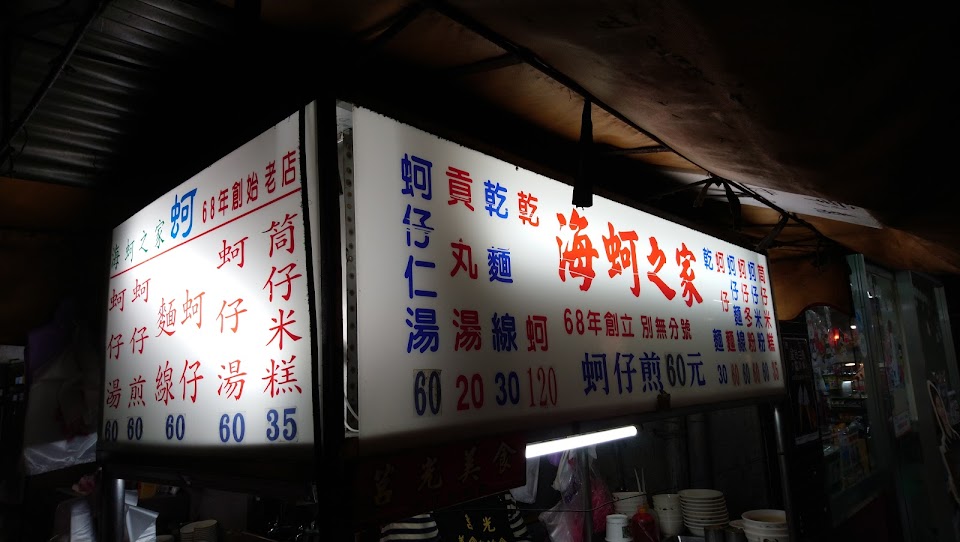 海蚵之家
蚵
68年創始 老店
筒仔米糕 35
蚵仔湯 60
蚵仔麵線 60
蚵仔煎 60
蚵仔湯 60
海蚵之家
68年創立 別無分號
蚵仔煎60元
蚵仔仁湯 60
貢丸湯 20
乾麵線 30
乾蚵 120
乾麵 30
蚵仔麵
蚵仔麵線
蚵仔冬粉
蚵仔米粉
筒仔米糕
莒光美食